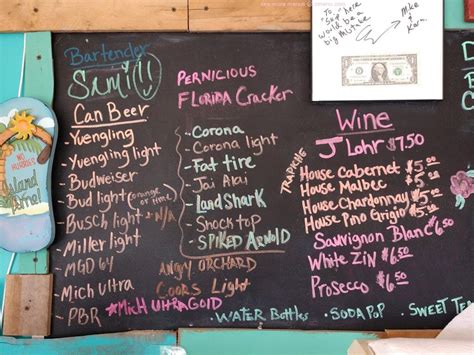 Bartender
Sami!!
Can Beer
- Yuengling
- Yuengling light
- Budweiser
- Bud light (orange or lime)
- Busch light - N/A
- Miller light
- MGD 64
- Mich Ultra
- PBR
*Mich Ultra Gold
Pernicious
Florida Cracker
- Corona
- Corona light
- Fat tire
- Jai Alai
- LandShark
- Shocktop
- Spiked Arnold
Angry Orchard
Coors Light
- Water Bottles
- Soda Pop
- Sweet Te
Wine
J Lohr $7.50
Trapiche
House Cabernet $5.00
House Malbec $5.00
House Chardonnay $5.00
House Pino Grigio $5.00
Sauvignon Blanc $6.50
White Zin $6.50
Prosecco $6.50
To
"Sup" here
would be a
big mistake
Mike
&
Karn.
No
Island
Time!